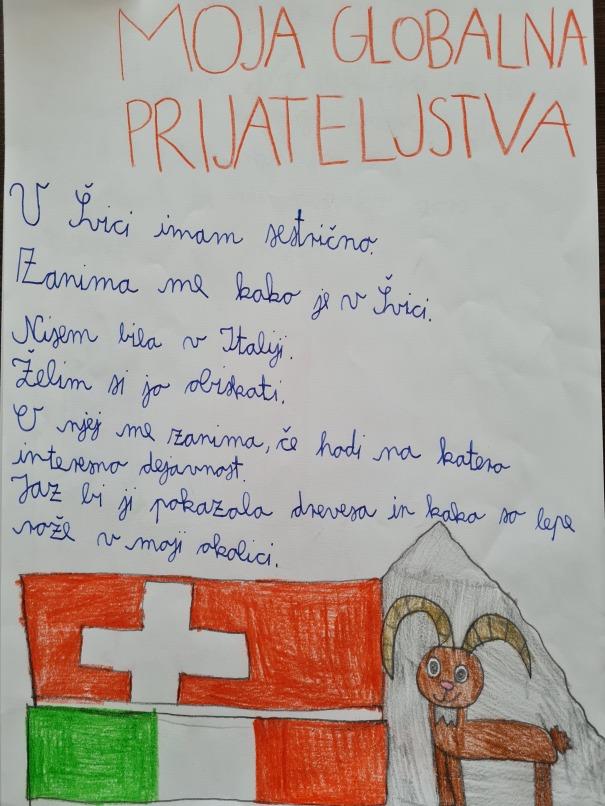 MOJA GLOBALNA
PRIJATELJSTVA
V Švici imam sestrično.
Zanima me kako je v Švici.
Nisem bila v Italiji.
Želim si jo obiskati.
V njej me zanima, če hodi na katero
interesno dejavnost.
Jaz bi ji pokazala drevesa in kako so lepe
rože v moji okolici.